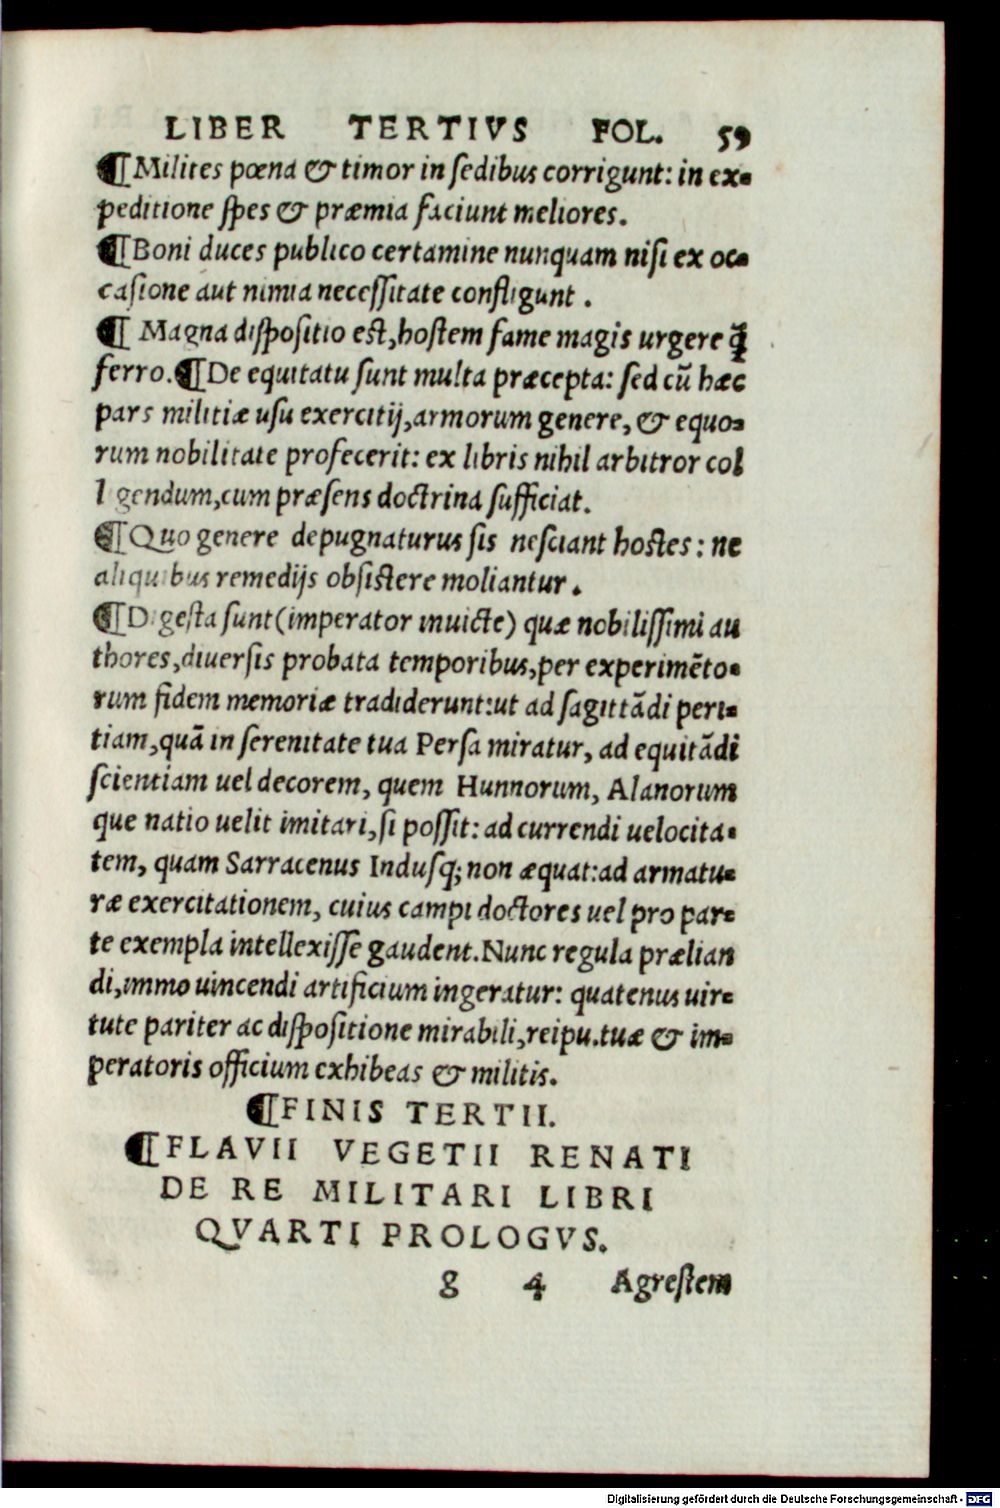 LIBER TERTIVS FOL. 59
¶Milites pœna & timor in sedibus corrigunt: in ex-
peditione spes & præmia faciunt meliores.
¶Boni duces publico certamine nunquam nisi ex oc-
casione aut nimia necessitate confligunt.
¶ Magna dispositio est, hostem fame magis urgere q̃
ferro.¶De equitatu sunt multa præcepta: sed cũ hæc
pars militiæ usu exercitij, armorum genere, & equo-
rum nobilitate profecerit: ex libris nihil arbitror col
l gendum, cum præsens doctrina sufficiat.
¶Quo genere depugnaturus sis nesciant hostes: ne
aliquibus remedijs obsistere moliantur.
¶Digesta sunt (imperator inuicte) quæ nobilissimi au
thores, diuersis probata temporibus, per experimẽto-
rum fidem memoriæ tradiderunt: ut ad sagittãdi peri-
tiam, quã in serenitate tua Persa miratur, ad equitãdi
scientiam uel decorem, quem Hunnorum, Alanorum
que natio uelit imitari, si possit: ad currendi uelocita-
tem, quam Sarracenus Indusq; non æquat: ad armatu-
ræ exercitationem, cuius campi doctores uel pro par-
te exempla intellexisse gaudent. Nunc regula prælian
di, immo uincendi artificium ingeratur: quatenus uir-
tute pariter ac dispositione mirabili, reipu. tuæ & im-
peratoris officium exhibeas & militis.
¶FINIS TERTII.
¶FLAVII VEGETII RENATI
DE RE MILITARI LIBRI
QVARTI PROLOGVS.
g 4 Agrestem
Digitalisierung gefördert durch die Deutsche Forschungsgemeinschaft - DFG